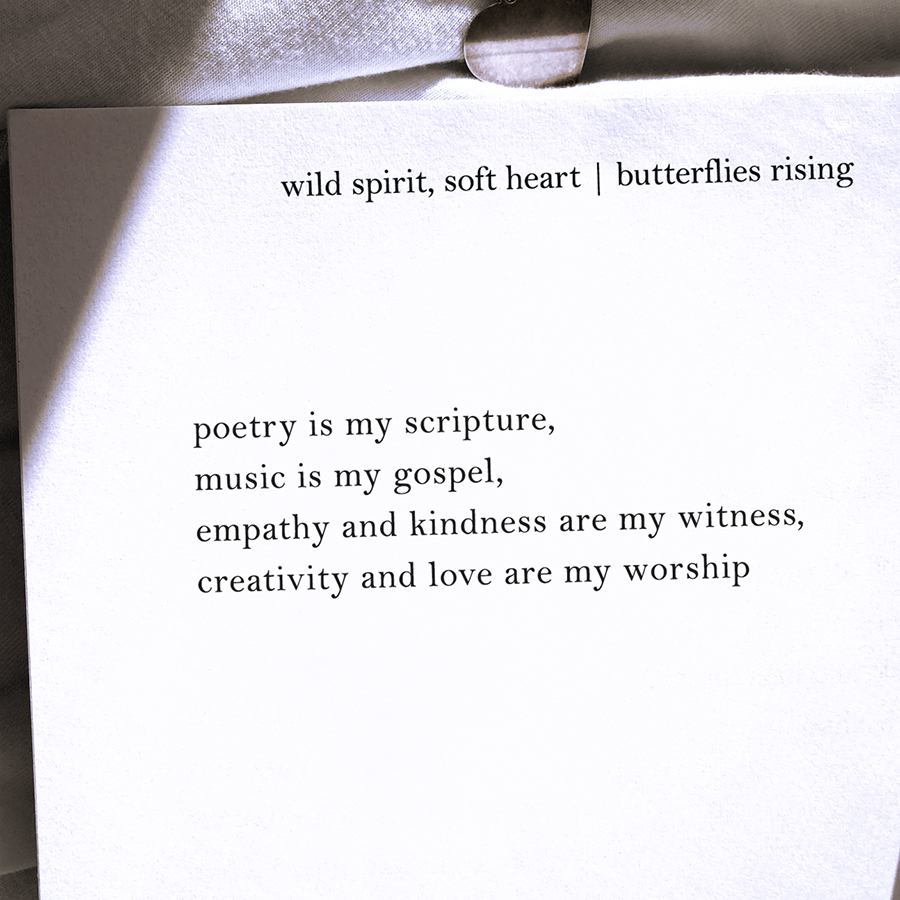 wild spirit, soft heart | butterflies rising
poetry is my scripture,
music is my gospel,
empathy and kindness are my witness,
creativity and love are my worship